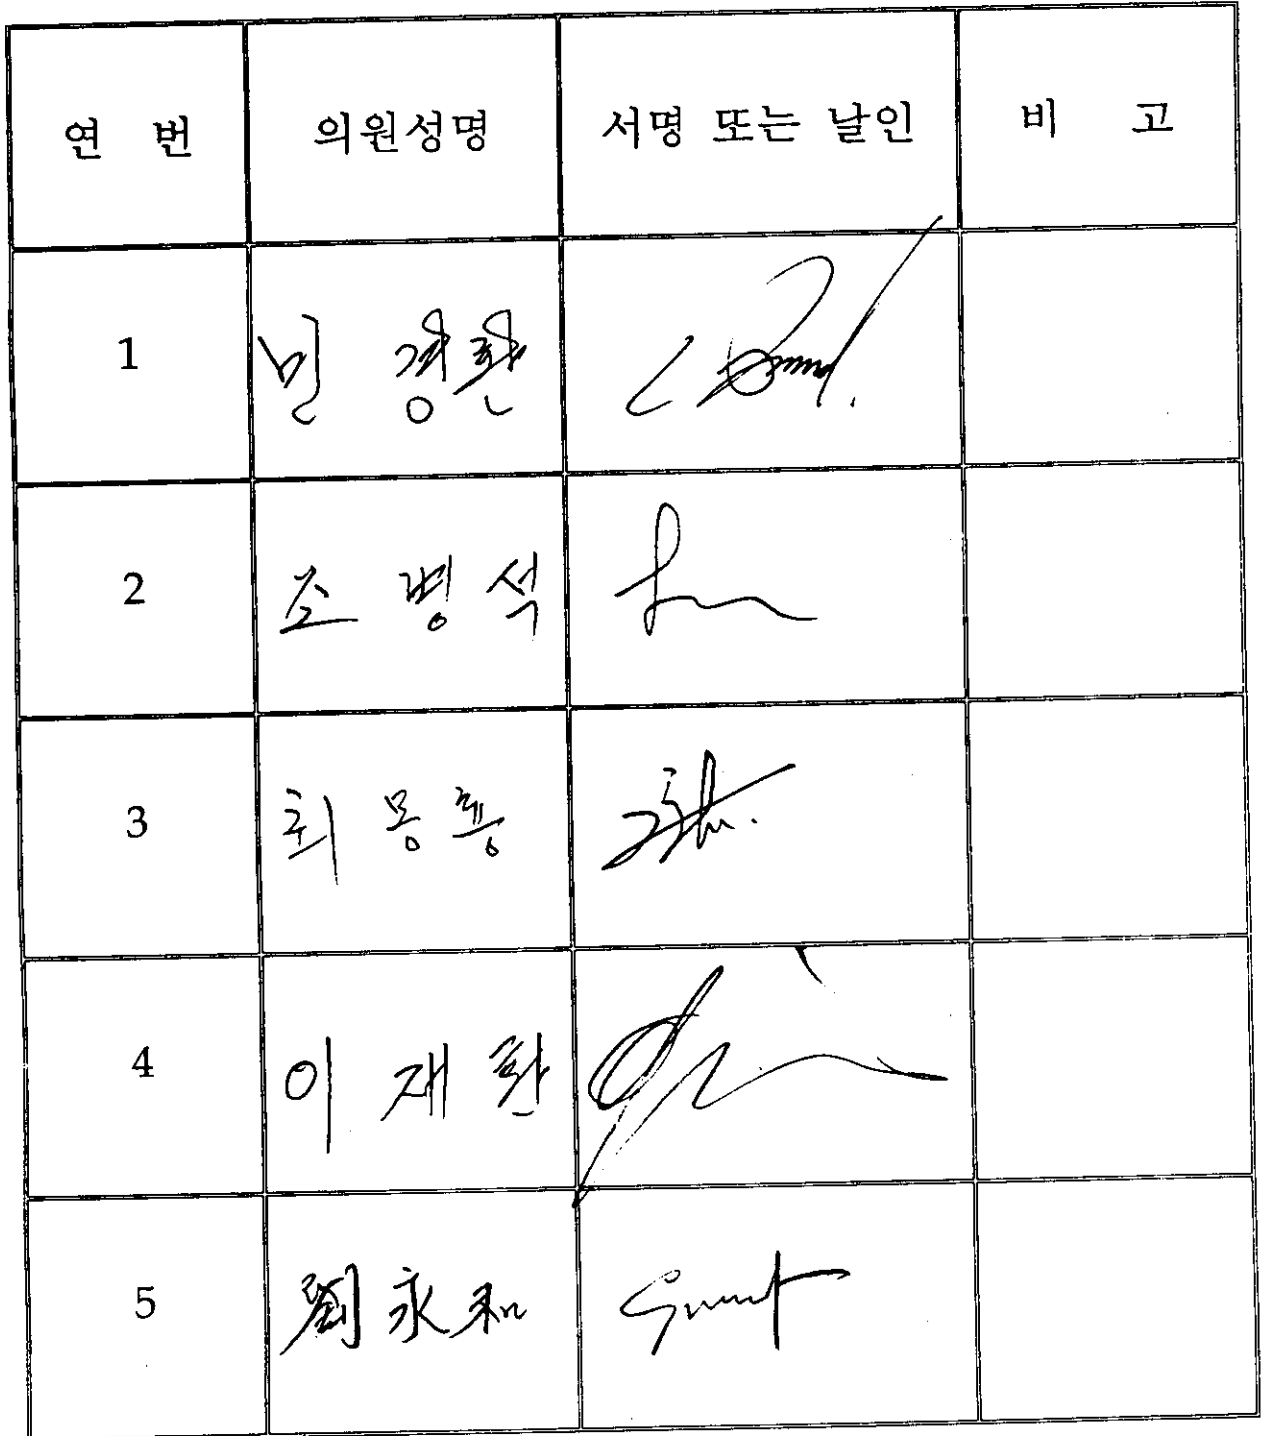 연 번 의원성명 서명 또는 날인 비 고
1 민 경환
2 조 병 석
3 최 몽 룡
4 이 재 환
5 劉 永 和